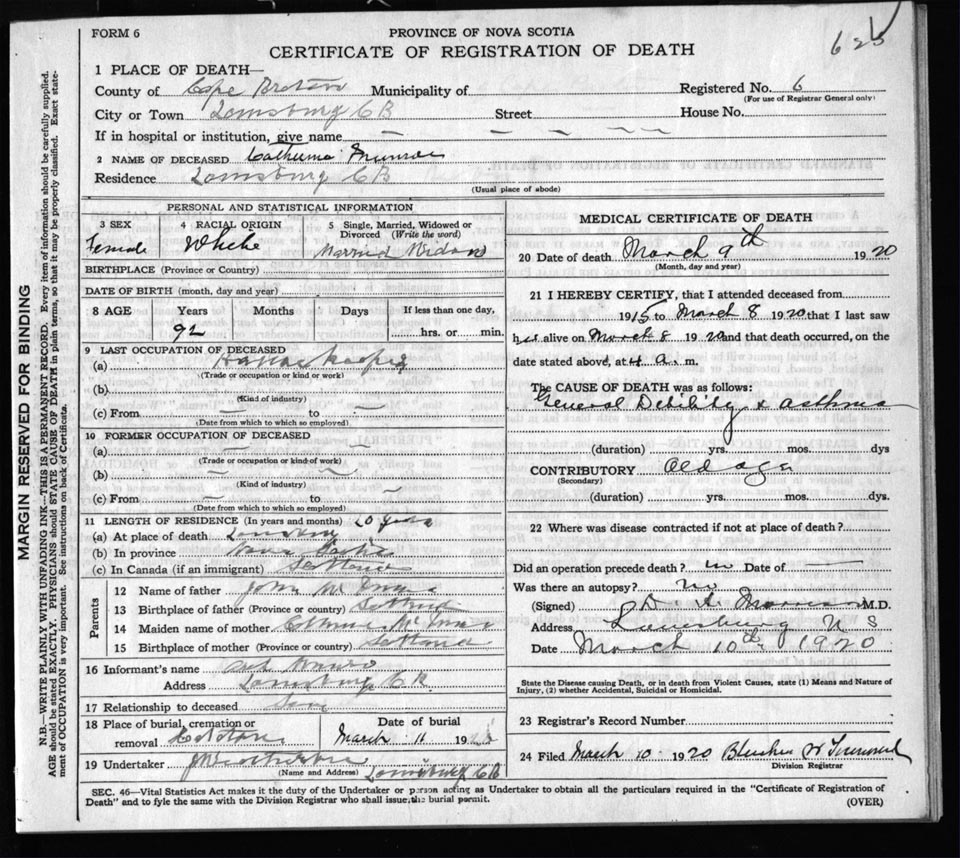 FORM 6
PROVINCE OF NOVA SCOTIA
CERTIFICATE OF REGISTRATION OF DEATH
1 PLACE OF DEATH—
County of Cape Breton Municipality of Registered No. 6
(For use of Registrar General only)
City or Town Louisburg CB Street House No.
If in hospital or institution, give name — — — —
2 NAME OF DECEASED
Residence Louisburg CB
(Usual place of abode)
PERSONAL AND STATISTICAL INFORMATION
3 SEX 4 RACIAL ORIGIN 5 Single, Married, Widowed or Divorced (Write the word)
Female White Married Widow
BIRTHPLACE (Province or Country)
DATE OF BIRTH (month, day and year)
8 AGE Years Months Days If less than one day,
92 hrs. or min.
9 LAST OCCUPATION OF DECEASED
(a)
(Trade or occupation or kind or work)
(b)
(Kind of industry)
(c) From — to —
(Date from which to which so employed)
10 FORMER OCCUPATION OF DECEASED
(a) —
(Trade or occupation or kind of work)
(b) — —
(Kind of industry)
(c) From — to —
(Date from which to which so employed)
11 LENGTH OF RESIDENCE (In years and months)
(a) At place of death
(b) In province Nova Scotia
(c) In Canada (if an immigrant) Scotland
Parents
12 Name of father John
13 Birthplace of father (Province or country) Scotland
14 Maiden name of mother
15 Birthplace of mother (Province or country) Scotland
16 Informant's name
Address Louisburg CB
17 Relationship to deceased Son
18 Place of burial, cremation or removal Date of burial
March 11 19
19 Undertaker
(Name and Address) Louisburg CB
MEDICAL CERTIFICATE OF DEATH
20 Date of death March 9th 1920
(Month, day and year)
21 I HEREBY CERTIFY, that I attended deceased from
1915 to March 8 1920 that I last saw
her alive on March 8 1920 and that death occurred, on the
date stated above, at 4 A. m.
The CAUSE OF DEATH was as follows:
General Debility & asthma
(duration) yrs. mos. dys
CONTRIBUTORY Old age
(Secondary)
(duration) yrs. mos. dys.
22 Where was disease contracted if not at place of death?
Did an operation precede death? no Date of —
Was there an autopsy? no
(Signed) M.D.
Address Louisburg N S
Date March 10th 1920
State the Disease causing Death, or in death from Violent Causes, state (1) Means and Nature of
Injury, (2) whether Accidental, Suicidal or Homicidal.
23 Registrar's Record Number
24 Filed March 10 1920
Division Registrar
SEC. 46—Vital Statistics Act makes it the duty of the Undertaker or person acting as Undertaker to obtain all the particulars required in the "Certificate of Registration of
Death" and to fyle the same with the Division Registrar who shall issue the burial permit.
(OVER)
MARGIN RESERVED FOR BINDING
N.B.—WRITE PLAINLY WITH UNFADING INK—THIS IS A PERMANENT RECORD. Every item of information should be carefully supplied.
AGE should be stated EXACTLY. PHYSICIANS should STATE CAUSE OF DEATH in plain terms, so that it may be properly classified. Exact state-
ment of OCCUPATION is very important. See instructions on back of Certificate.